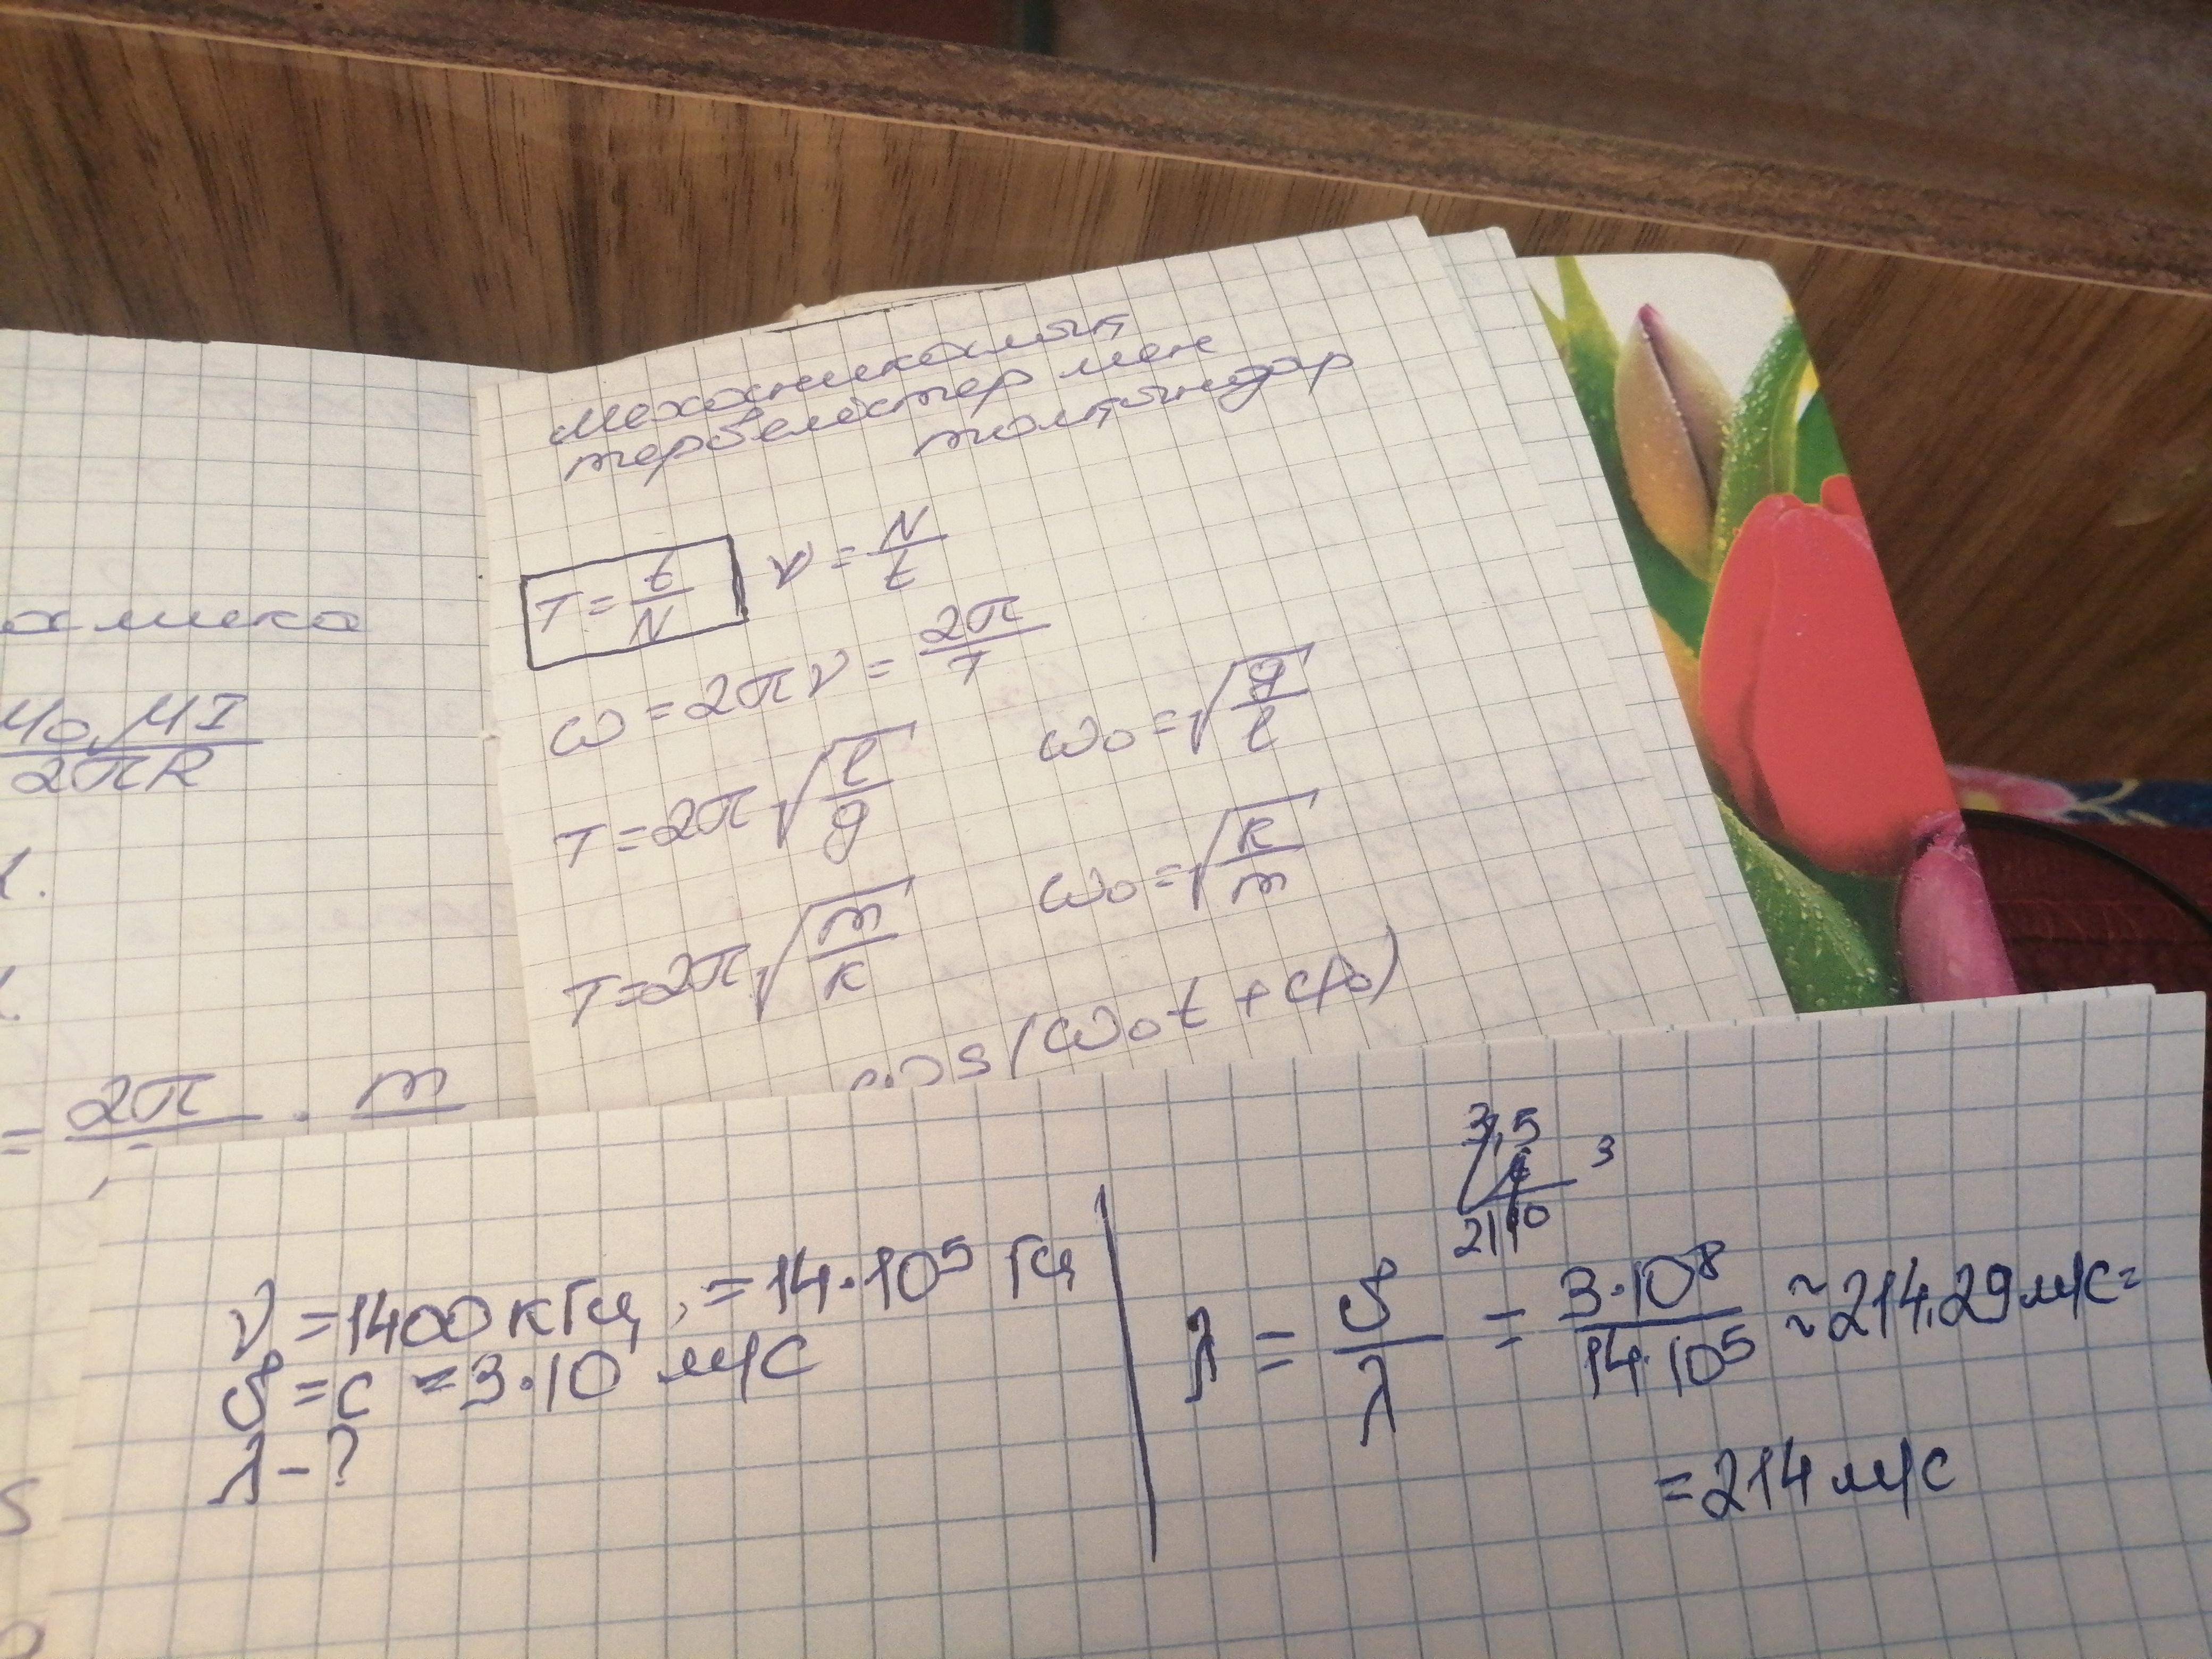 Механикалық
тербелістер мен
толқындар
T = t/N ν = N/t
ω = 2πν = 2π/T
T = 2π√(l/g) ω₀ = √(g/l)
T = 2π√(m/k) ω₀ = √(k/m)
cos(ω₀t + φ₀)
амика
μ₀μI/2πR
= 2π/ · m/
ν = 1400 кГц, = 14·10⁵ Гц
υ = c = 3·10 м/с
λ - ?
3,5
3
λ = υ/λ = 3·10⁸/14·10⁵ ≈ 214,29 м/с =
= 214 м/с